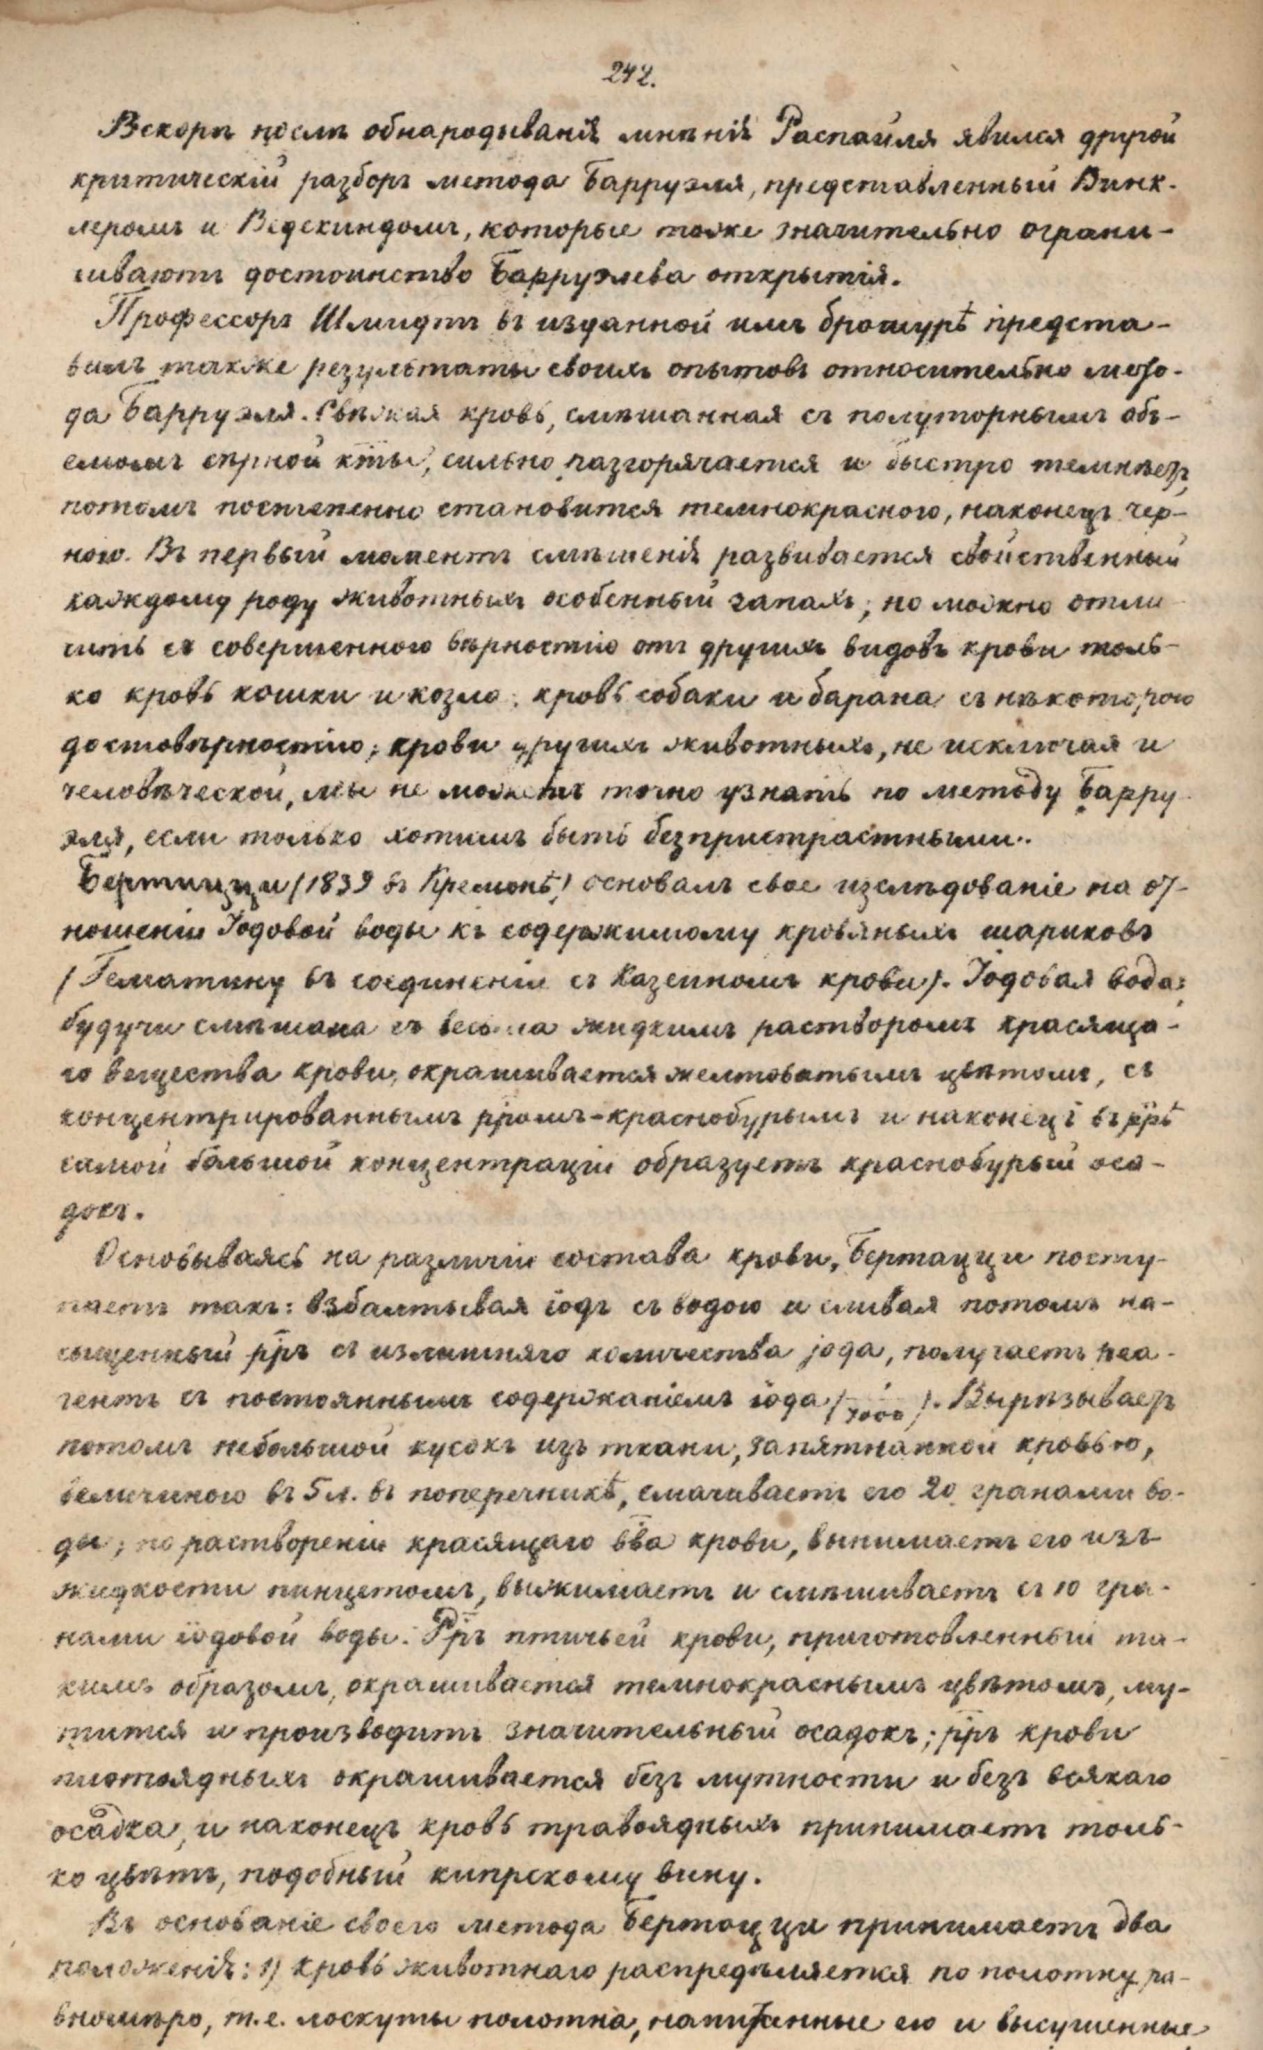 242.
Вскорѣ послѣ обнародыванія мнѣнія Распайля явился другой
критическій разборъ метода Барруэля, представленный Винк-
леромъ и Ведекиндомъ, которые тоже значительно ограни-
чиваютъ достоинство Барруэлева открытія.
Профессоръ Шмидтъ въ изданной имъ брошурѣ предста-
вилъ также результаты своихъ опытовъ относительно мето-
да Барруэля. Свѣжая кровь, смѣшанная съ полуторнымъ объ-
емомъ сѣрной кты, сильно разгорячается и быстро темнѣетъ,
потомъ постепенно становится темнокрасною, наконецъ чер-
ною. Въ первый моментъ смѣшенія развивается свойственный
каждому роду животныхъ особенный запахъ; но можно отли
чить съ совершенною вѣрностію отъ другихъ видовъ крови толь-
ко кровь кошки и козла; кровь собаки и барана съ нѣкоторою
достовѣрностію; крови другихъ животныхъ, не исключая и
человѣческой, мы не можемъ точно узнать по методу Барру
эля, если только хотимъ быть безпристрастными.
Бертацци (1839 въ Кремонѣ) основалъ свое изслѣдованіе на от-
ношеніи Іодовой воды къ содержимому кровяныхъ шариковъ
(Гематину въ соединеніи съ Казеиномъ крови). Іодовая вода,
будучи смѣшана съ весьма жидкимъ растворомъ красяща-
го вещества крови, окрашивается желтоватымъ цвѣтомъ, съ
концентрированнымъ рромъ-краснобурымъ и наконецъ въ ррѣ
самой большой концентраціи образуетъ краснобурый оса-
докъ.
Основываясь на различіи состава крови, Бертацци посту-
паетъ такъ: взбалтывая іодъ съ водою и сливая потомъ на-
сыщенный рръ съ излишняго количества іода, получаетъ реа-
гентъ съ постояннымъ содержаніемъ іода (1/7000). Вырѣзываетъ
потомъ небольшой кусокъ изъ ткани, запятнанной кровью,
величиною въ 5 л. въ поперечникѣ, смачиваетъ его 20 гранами во-
ды; по раствореніи красящаго вва крови, вынимаетъ его изъ
жидкости пинцетомъ, выжимаетъ и смѣшиваетъ съ 10 гра-
нами іодовой воды. Рръ птичьей крови, приготовленный та-
кимъ образомъ, окрашивается темнокраснымъ цвѣтомъ, му-
тится и производитъ значительный осадокъ; рръ крови
плотоядныхъ окрашивается безъ мутности и безъ всякаго
осадка, и наконецъ кровь травоядныхъ принимаетъ толь-
ко цвѣтъ, подобный кипрскому вину.
Въ основаніе своего метода Бертацци принимаетъ два
положенія: 1) кровь животнаго распредѣляется по полотну ра-
вномѣрно, т.е. лоскуты полотна, напитанные ею и высушенные